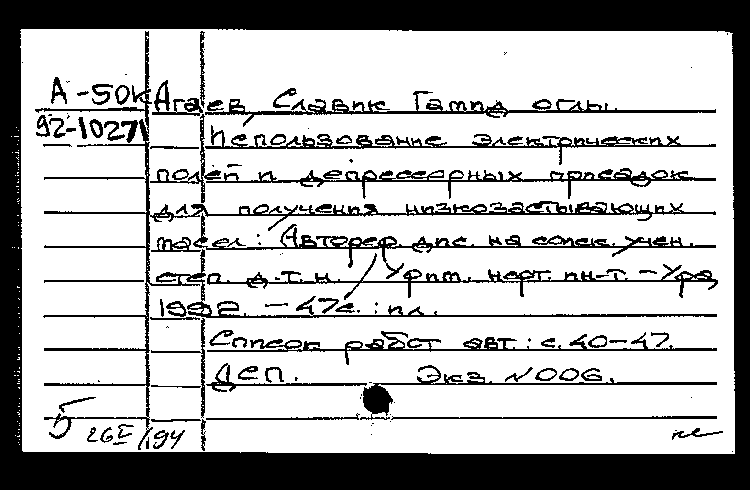 А-50к Агаев Славик Гамид оглы.
92-10271 Использование электрических
полей и депрессорных присадок
для получения низкозастывающих
масел : Автореф. дис. на соиск. учен.
степ. д.т.н. Уфим. нефт. ин-т. - Уфа,
1992. - 47с. : ил.
Список работ авт.: с. 40-47.
Деп. Экз. №006.
Б 26I/94